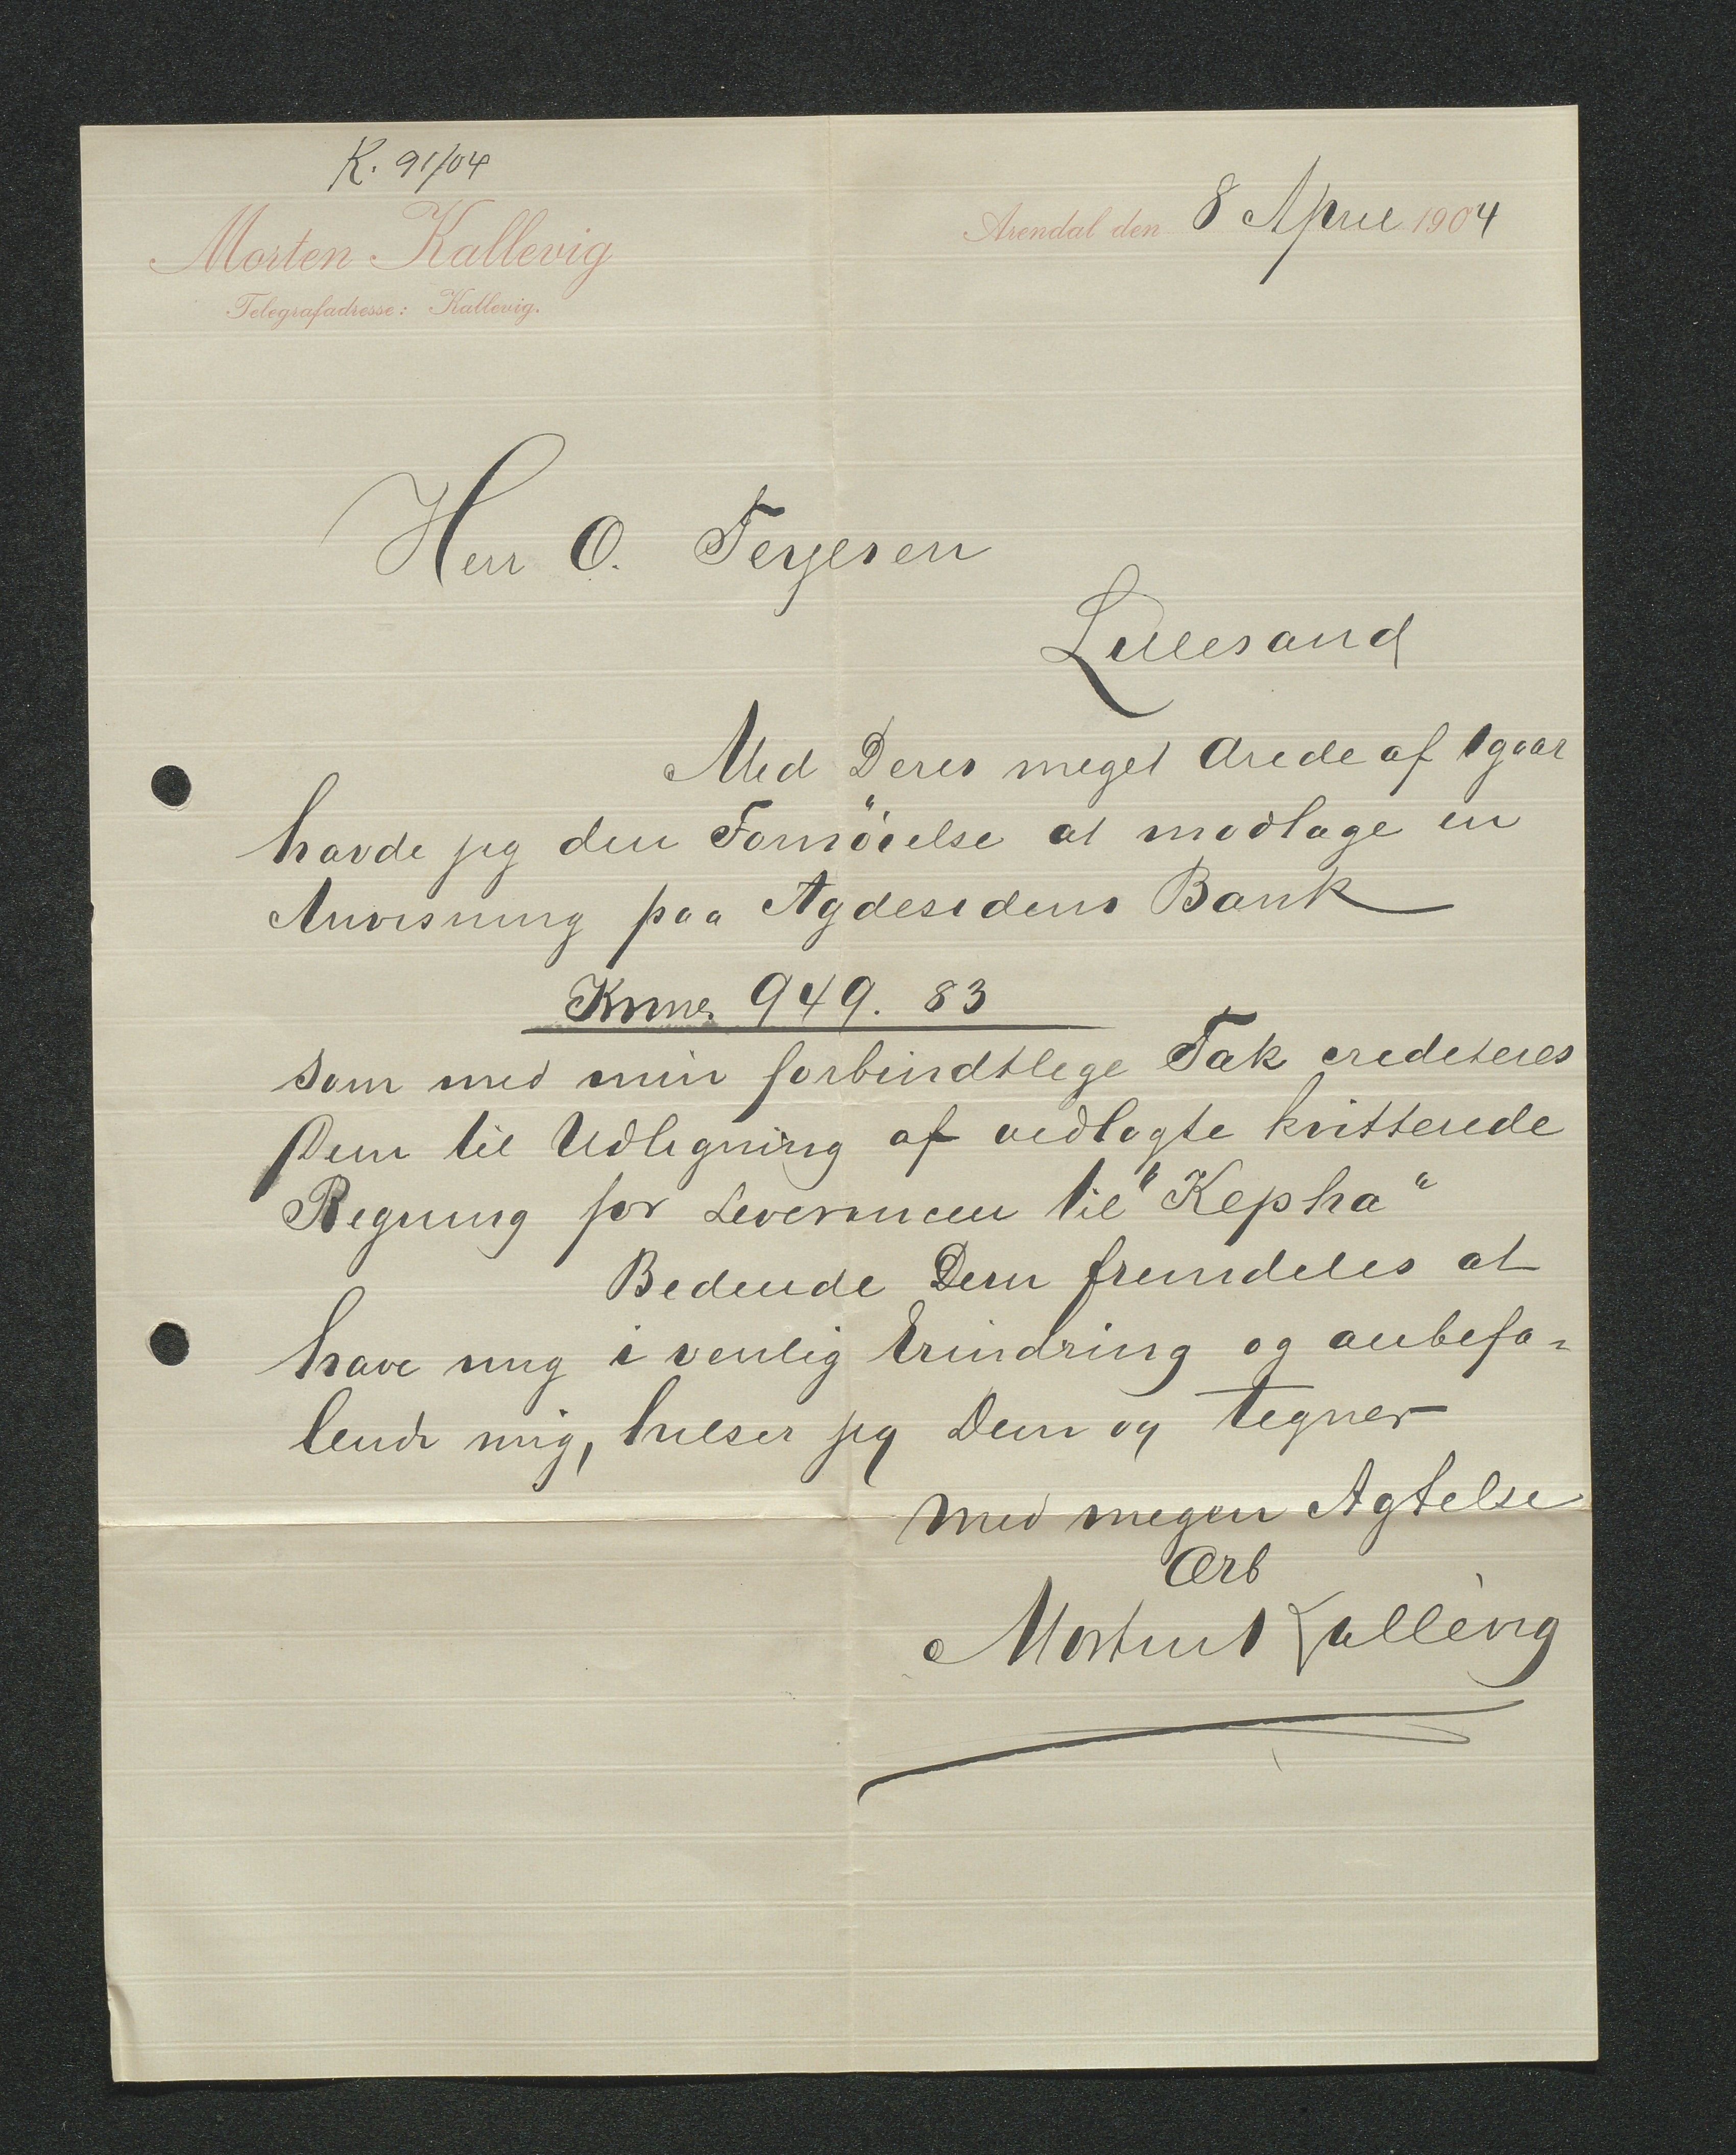 K. 91/04
Morten Kallevig
Telegrafadresse: Kallevig.
Arendal den 8 April 1904
Herr O. Terjesen
Lillesand
Med Deres meget Ærede af Igaar
havde jeg den Fornöielse at modtage en
Anvisning paa Agdesidens Bank
Kroner 949. 83
som med min forbindtlige Tak crediteres
Dem til Udligning af vedlagte kvitterede
Regning for Leverancen til "Kepha"
Bedende Dem fremdeles at
have mig i venlig Erindring og anbefa-
lende mig, hilser jeg Dem og tegner
Med megen Agtelse
Ærb
Morten Kallevig